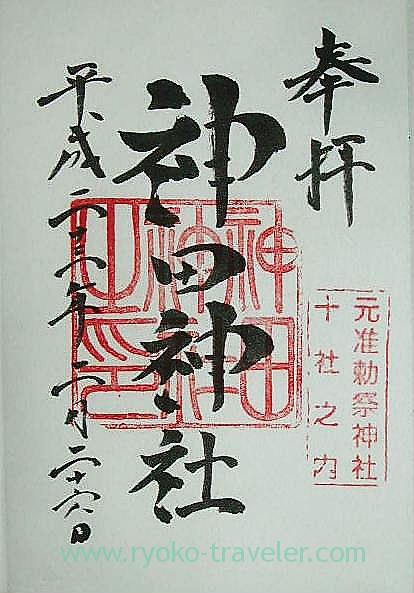 奉拝
元准勅祭神社
十社之内
神田神社
神田
神社
之印
平成二十三年
月二十
日
www.ryoko-traveler.com